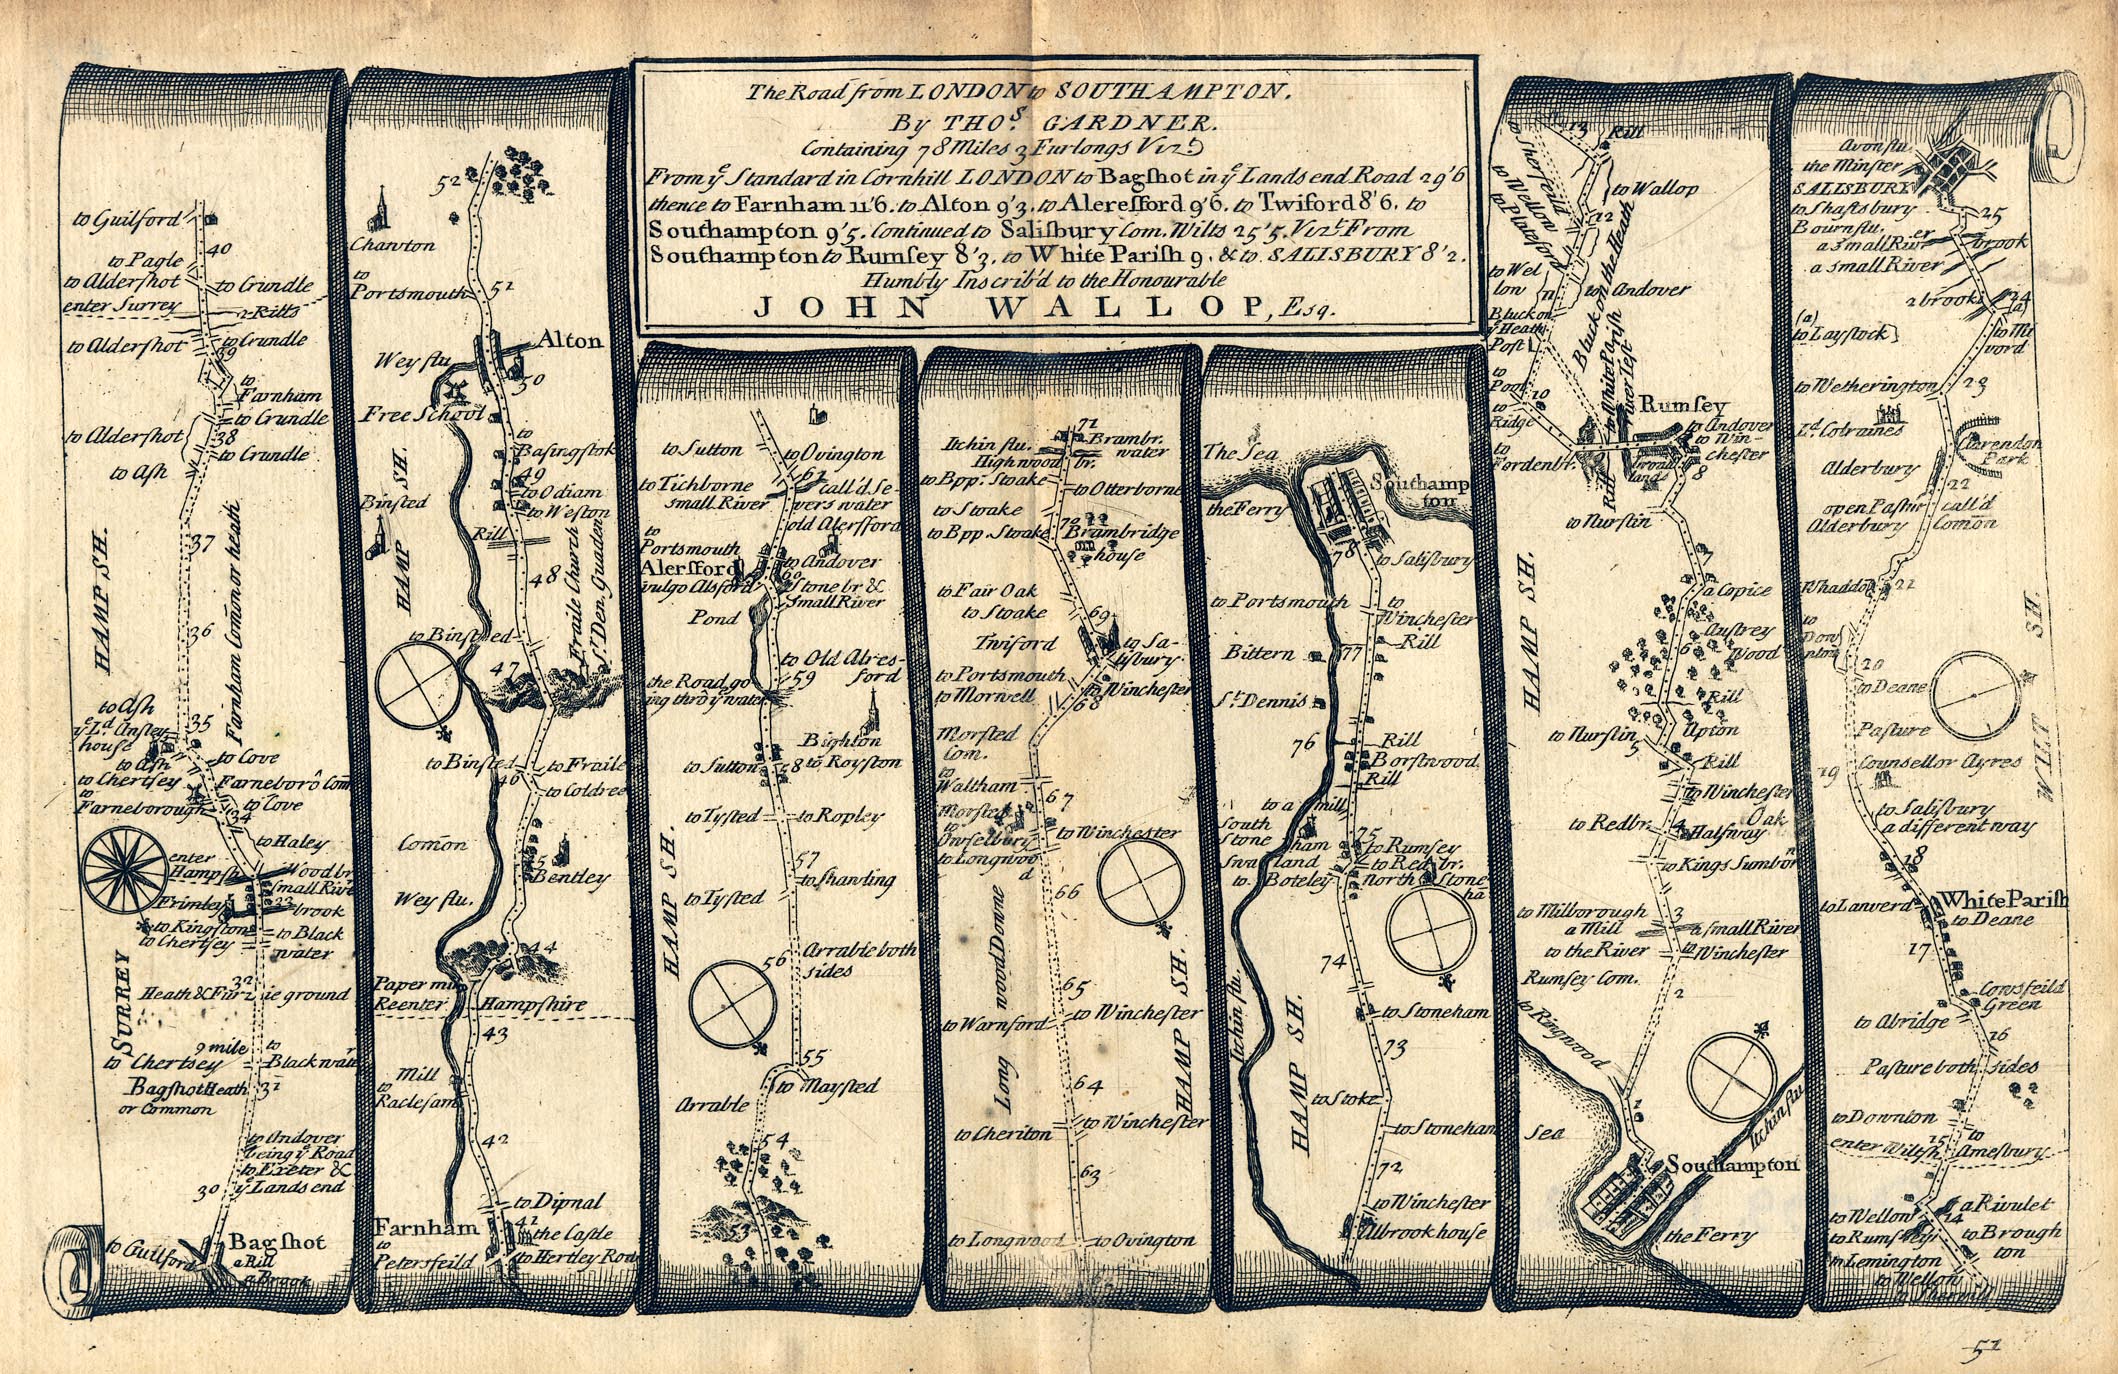 The Road from LONDON to SOUTHAMPTON.
By THOS. GARDNER.
Containing 78 Miles 3 Furlongs Vizt.
From ye Standard in Cornhill LONDON to Bagshot in ye Lands end Road 29'6
thence to Farnham 11'6. to Alton 9'3. to Aleresford 9'6. to Twiford 8'6. to
Southampton 9'5. Continued to Salisbury Com. Wilts 25'5. Vizt. From
Southampton to Rumsey 8'3. to White Parish 9. & to SALISBURY 8'2.
Humbly Inscrib'd to the Honourable
JOHN WALLOP, Esq.
to Guilford
40
to Pagle
to Aldershot
to Crundle
enter Surrey
2 Rills
to Aldershot
to Crundle
39
to Farnham
to Crundle
to Aldershot
38
to Crundle
to Ash
HAMP SH.
37
Farnham Comon or heath
36
to Ash
35
ye Ld. Ansley
house
to Ash
to Cove
to Chertsey
Farneboro Com
to
Farneborough
to Cove
34
to Haley
enter
Hampsh
Wood br.
small Rive
Frimley
33
brook
to Kingstone
to Black
water
to Chertsey
SURREY
32
Heath & Furzie ground
9 mile
to Chertsey
to
Blackwatr
Bagshot Heath
or Common
31
to Andover
being ye Road
to Exeter &
ye Lands end
30
to Guilford
Bagshot
a Rill
a Brook
52
Chawton
to
Portsmouth
51
Alton
Wey flu.
50
Free School
to
Basingstok
HAMP SH.
49
to Odiam
to Weston
Binsted
Rill
48
Fraile Church
Sr. Den. Guaden
to Binsted
47
to Binsted
46
to Fraile
to Coldree
Comon
45
Bentley
Wey flu.
44
Paper mill
Reenter Hampshire
43
Mill
to
Raclesam
42
to Dipnal
Farnham
41
the Castle
to
Petersfeild
to Hertley Row
to Sutton
to Ovington
61
to Tichborne
small River
call'd Se-
vers water
old Alersford
to
Portsmouth
Alersford
vulgo Alsford
to Andover
60
Stone br &
Small River
Pond
to Old Alres-
ford
59
the Road go
ing thro ye water
Bighton
to Sutton
58
to Royston
to Tysted
to Ropley
57
to Shanling
to Tysted
HAMP SH.
56
Arrable both
sides
55
to Maysted
Arrable
54
53
71
Itchin flu.
Brambr.
water
Highwood br.
to Bpps. Stoake
to Otterborne
to Stoake
70
to Bpp. Stoake
Brambridge
house
to Fair Oak
to Stoake
69
Twiford
to Sa-
lisbury
to Portsmouth
to Winchester
to Morwell
68
Morsted
Com.
to
Waltham
67
Morsted
to
Owselbury
to Winchester
to Longwoo
d
66
Long wood Downe
65
to Warnford
to Winchester
HAMP SH.
64
to Cheriton
to Winchester
63
to Longwood
to Ovington
The Sea
the Ferry
Southamp
ton
78
to Salisbury
to Portsmouth
to
Winchester
Rill
Bittern
77
St. Dennis
76
Rill
Borstwood
Rill
to a mill
South
Stone ham
75
to Rumsey
to Red br.
Swa land
to Boteley
North Stone
ha
74
to Stoneham
Itchin flu.
HAMP SH.
73
to Stoke
to Stoneham
72
to Winchester
Albrook house
13
Rill
to Sherfeild
to Wellon
to Plateford
to Wallop
12
to Wel
lon
11
to Andover
Black on the Heath
Black on
ye Heath
Post
to White Parish
River Test
to
Pool
10
to
Ridge
Rumsey
to Andover
to Win-
chester
to
Fordenbr.
Rill
broad
land
8
to Nurstin
7
a Copice
Anstrey
Wood
6
Rill
HAMP SH.
to Nurstin
5
Upton
Rill
to Winchester
to Redbr.
4
Oak
Halfway
to Kings Sumborn
to Milborough
a Mill
3
a small River
to the River
to
Winchester
Rumsey Com.
2
to Ringwood
1
Sea
Itchin flu
Southampton
the Ferry
Avon flu.
the Minster
SALISBURY
to Shaftsbury
25
Bourn flu.
a small River
brook
a small River
2 brooks
24
(a)
(a)
to Laystock
to Mi
vord
to Wetherington
23
Ld. Colraines
Clarendon
Park
Alderbury
22
open Pastur
call'd
Alderbury
Comon
Whaddon
21
to
Down
nton
20
to Deane
Pasture
WILT SH.
19
Counsellor Ayres
to Salisbury
a different way
18
White Parish
to Lanverd
to Deane
17
Cowsfeild
Green
to Abridge
16
Pasture both sides
to Downton
15
to
enter Wiltsh
Amesbury
a Rivulet
to Wellon
14
to Rumsey
to Brough
ton
to Lemington
to Wellon
51